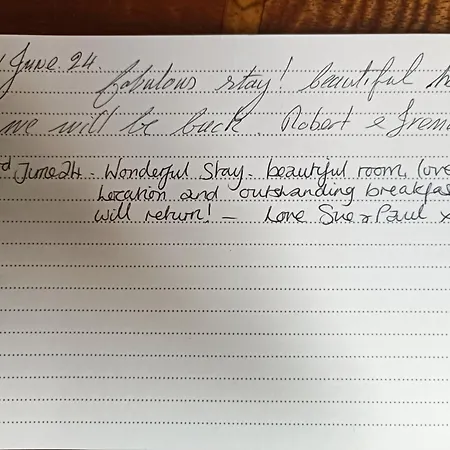 June 24.
fabulous stay! beautiful
we will be back. Robert &
June 24 - Wonderful Stay - beautiful room, love
Location and outstanding breakfas
will return! - Love Sue & Paul x